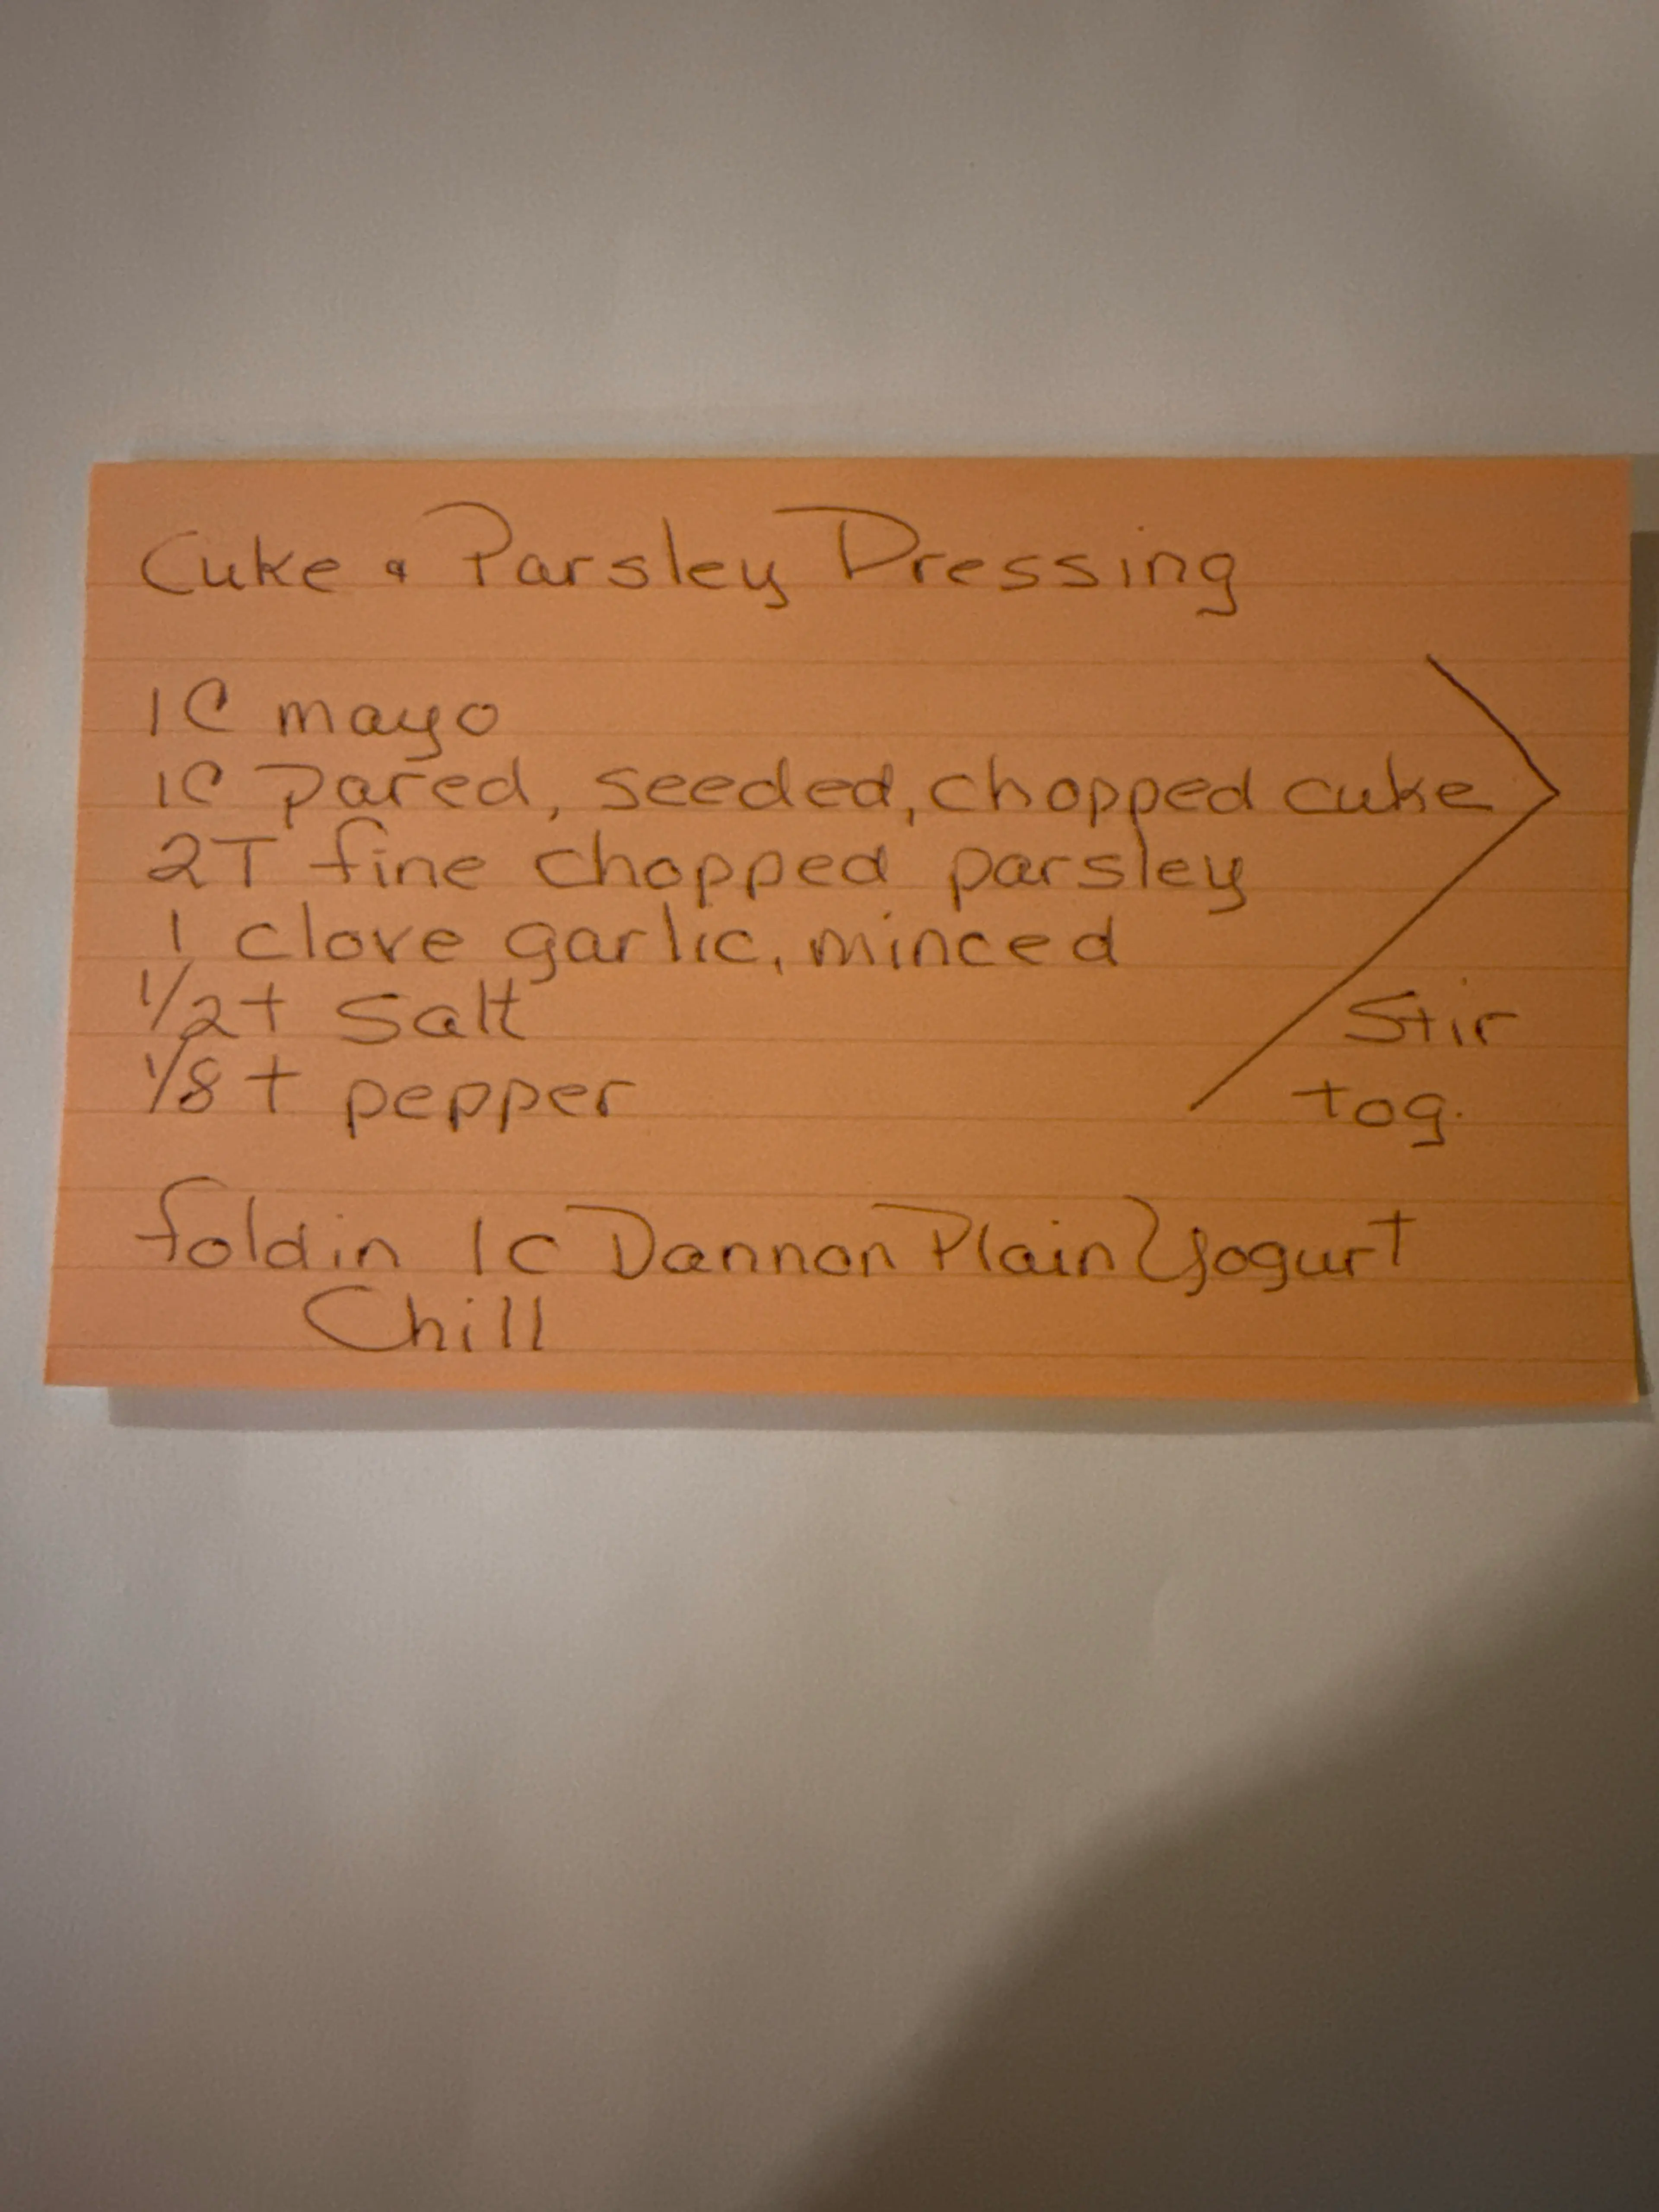 Cuke & Parsley Dressing
1C mayo
1C pared, seeded, chopped cuke
2T fine chopped parsley
1 clove garlic, minced
1/2 t salt
1/8 t pepper
Stir
tog.
fold in 1C Dannon Plain Yogurt
Chill